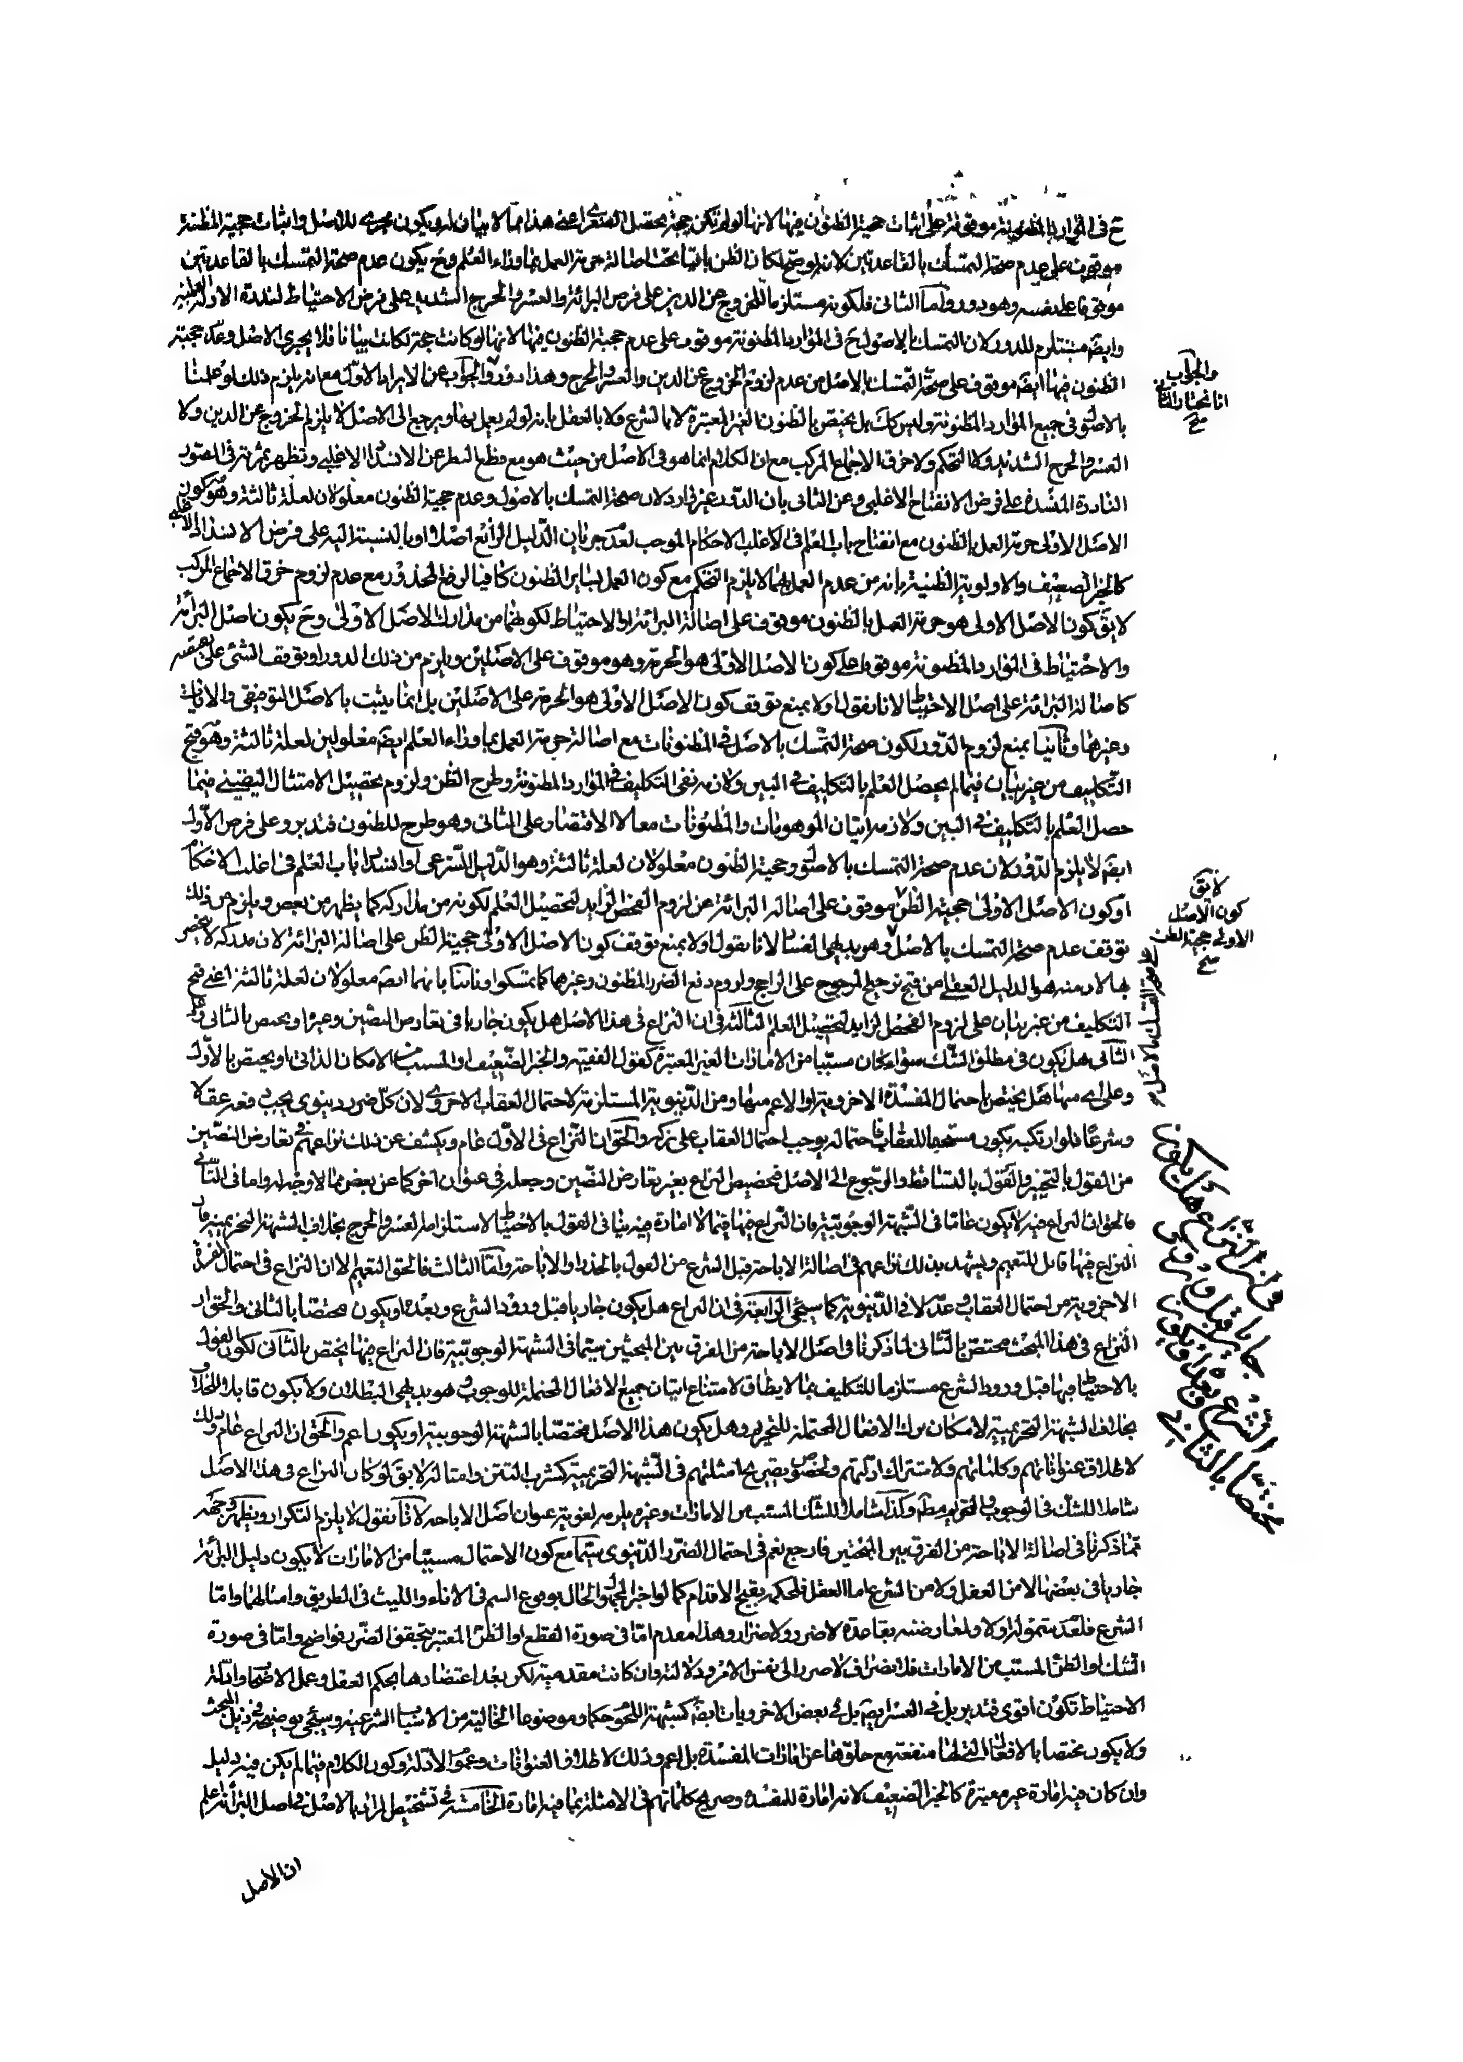 ح فى الموارد المظنونة موقوفة على اثبات حجية الظنون فيها لانها لو لم تكن حجة يحصل الصغرى اعنى هذا مما لا بيان له ويكون مجرى للاصل واثبات حجية المظنة
موقوف على عدم صحة التمسك بالقاعدتين لانه لو صح لكان الظن باقيا تحت اصالة حرمة العمل بما وراء العلم وح يكون عدم صحة التمسك بالقاعدتين
موقوفا على نفسه وهو دور واما الثانى فلكونه مستلزما للخروج عن الدين على فرض البرائة والعسر والحرج الشديد على فرض الاحتياط لندرة الادلة العلمية
وايضه مستلزم للدور لان التمسك بالاصول ح فى الموارد المظنونة موقوف على عدم حجية الظنون فيها لانها لو كانت حجة لكانت بيانا فلا يجرى الاصل وعدم حجية
الظنون فيها ايضه موقوف على صحة التمسك بالاصل من عدم لزوم الخروج عن الدين والعسر والحرج وهذا دور والجواب عن الايراد الاول مع انه يلزم ذلك لو علمنا
بالاصول فى جميع الموارد المظنونة وليس كك بل يختص بالظنون الغير المعتبرة لا بالشرع ولا بالعقل بانه لو لم يعمل بها ويرجع الى الاصل لا يلزم الخروج عن الدين ولا
العسر والحرج الشديد ولا التحكم ولا خرق الاجماع المركب مع ان الكلام انما هو فى الاصل من حيث هو مع قطع النظر عن الانسداد الاغلبى وتظهر ثمرته فى الصور
النادرة المنسدة على فرض الانفتاح الاغلبى وعن الثانى بان الدور غير وارد لان صحة التمسك بالاصول وعدم حجية الظنون معلولان لعلة ثالثة وهو كون
الاصل الاولى حرمة العمل بالظنون مع انفتاح باب العلم فى الاغلب الاحكام الموجب لعدم جريان الدليل الرابع اصلا او بالنسبة اليه على فرض الانسداد الاغلبى
كالخبر الضعيف والاولوية الظنية بانه من عدم العمل بهما لا يلزم التحكم مع كون العمل بساير الظنون كافيا لرفع المحذور مع عدم لزوم خرق الاجماع المركب
لا يق كون الاصل الاولى هو حرمة العمل بالظنون موقوف على اصالة البرائة او الاحتياط لكونهما من مدارك الاصل الاولى وح يكون اصل البرائة
والاحتياط فى الموارد المظنونة موقوفا على كون الاصل الاولى هو الحرمة وهو موقوف على الاصلين ويلزم من ذلك الدور او توقف الشئ على بعضه
كاصالة البرائة على اصل الاحتياط لانا نقول اولا بمنع توقف كون الاصل الاولى هو الحرمة على الاصلين بل انما يثبت بالاصل التوقيفى والايات
وغيرهما وثانيا بمنع لزوم الدور لكون صحة التمسك بالاصل فى المظنونات مع اصالة حرمة العمل بما وراء العلم ايضه معلولين لعلة ثالثة وهو قبح
التكليف من غير بيان فيما لم يحصل العلم بالتكليف فى البين ولازمه نفى التكليف فى الموارد المظنونة وطرح الظن ولزوم تحصيل الامتثال اليقينى فيما
حصل العلم بالتكليف فى البين ولازمه اتيان الموهومات والمظنونات معا لا الاقتصار على الثانى وهو طرح للظنون فتدبر وعلى فرض الاول
ايضه لا يلزم الدور لان عدم صحة التمسك بالاصول وحجية الظنون معلولان لعلة ثالثة وهو الدليل الشرعى او انسداد باب العلم فى اغلب الاحكام
او كون الاصل الاولى حجية الظن موقوف على اصالة البرائة عن لزوم الفحص الزايد لتحصيل العلم لكونه من مداركه كما يظهر من بعض ويلزم من ذلك
توقف عدم صحة التمسك بالاصل وهو بديهى الفساد لانا نقول اولا بمنع توقف كون الاصل الاولى حجية الظن على اصالة البرائة لان مدركه لا ينحصر
بها لان منه هو الدليل العقلى من قبح ترجيح المرجوح على الراجح ولزوم دفع الضرر المظنون وغيرهما كما تمسكوا وثانيا بانهما ايضه معلولان لعلة ثالثة اعنى قبح
التكليف من غير بيان على لزوم الفحص الزايد لتحصيل العلم الثالثة فى ان النزاع فى هذا الاصل هل يكون جاريا فى تعارض النصين وغيره او يختص بالثانى وعلى
الثانى هل يكون فى مطلق الشك سواء كان مسببا من الامارات الغير المعتبرة كقول الفقيه والخبر الضعيف او المسبب من الامكان الذاتى او يختص بالاول
وعلى اى منهما هل يختص باحتمال المفسدة الاخروية او الاعم منها ومن الدنيوية المستلزمة لاحتمال العقاب الاخروى لان كل ضرر دنيوى يجب دفعه عقلا
وشرعا فلو ارتكبه يكون مستحقا للعقاب فاحتماله يوجب احتمال العقاب على تركه والحق ان النزاع فى الاول عام ويكشف عن ذلك نزاعهم فى تعارض النصين
من القول بالتخيير والقول بالتساقط والرجوع الى الاصل فتخصيص النزاع بغير تعارض النصين وجعله فى عنوان اخر كما عن بعض مما لا وجه له واما فى الثانى
فالحق ان النزاع فيه لا يكون عاما فى الشبهة الوجوبية فان النزاع فيها فيما لا امارة فيه ينافى القول بالاحتياط لاستلزامه العسر والحرج بخلاف الشبهة التحريمية فان
النزاع فيها قابل للتعميم ويشهد بذلك نزاعهم فى اصالة الاباحة قبل الشرع من القول بالحذر او الاباحة واما الثالث فالحق التعميم لان النزاع فى احتمال المضرة
الاخروية من احتمال العقاب وعدمه لا فى الدنيوية كما سيجئ الرابعة فى ان النزاع هل يكون جاريا قبل ورود الشرع وبعده او يكون مختصا بالثانى والحق ان
النزاع فى هذا المبحث مختص بالثانى لما ذكرنا فى اصل الاباحة من الفرق بين المبحثين سيما فى الشبهة الوجوبية فان النزاع فيها يختص بالثانى لكون القول
بالاحتياط فيها قبل ورود الشرع مستلزما للتكليف بما لا يطاق لامتناع اتيان جميع الافعال المحتملة للوجوب وهو بديهى البطلان ولا يكون قابلا للخلاف
بخلاف الشبهة التحريمية لامكان ترك الافعال المحتملة للتحريم وهل يكون هذا الاصل مختصا بالشبهة الوجوبية او يكون اعم والحق ان النزاع عام وذلك
لاطلاق عنواناتهم وكلماتهم ولاشتراك ادلتهم ولخصوص تصريح امثلتهم فى الشبهة التحريمية كشرب التتن وامثاله لا يق لو كان النزاع فى هذا الاصل
شاملا للشك فى الوجوب والتحريم مطه وكذا شاملا للشك المسبب من الامارات وغيره يلزمه لغوية عنوان اصل الاباحة لانا نقول لا يلزم التكرار ويظهر وجهه
مما ذكرنا فى اصالة الاباحة من الفرق بين المبحثين فارجع نعم فى احتمال الضرر الدنيوى سيما مع كون الاحتمال مسببا من الامارات لا يكون دليل البرائة
جاريا فى بعضها لا من العقل ولا من الشرع اما العقل فلحكمه بقبح الاقدام كما لو اخبر المجهول الحال بوقوع السم فى الاناء والليث فى الطريق وامثالهما واما
الشرع فلعدم شموله اولا ولمعارضته بقاعدة لا ضرر ولا ضرار وهذا مقدم اما فى صورة القطع او الظن المعتبر بتحقق الضرر فواضح واما فى صورة
الشك او الظن المسبب من الامارات فلانصراف لا ضرر الى نفس الامر ودلالته وان كانت مقدمية لكن بعد اعتضادها بحكم العقل وعمل الاصحاب وادلة
الاحتياط تكون اقوى فتدبر بل فى العسر ايضه بل فى بعض الاخرويات ايضه كشبهة اللحوم حكما وموضوعا الخالية من الاسباب الشرعية وسيجئ توضيحه فى ذيل المبحث
ولا يكون مختصا بالافعال المشتملة منفعة مع خلوها عن امارات المفسدة بل اعم وذلك لاطلاق العنوانات وعموم الادلة وكون الكلام فيما لم يكن فيه دليل
وان كان فيه امارة غير معتبرة كالخبر الضعيف لانه امارة للمفسدة وصريح كلماتهم فى الامثلة بما فيه امارة الخامسة فى تشخيص المراد بالاصل فى اصل البرائة اعلم
ان الاصل
والجواب
انا نختار الثانى
صح
لا يق
كون الاصل
الاولى حجية الظن
صح
على صحة التمسك بالاصل صح
فى ان النزاع هل يكون
جاريا قبل ورود
الشرع وبعده او يكون
مختصا بالثانى